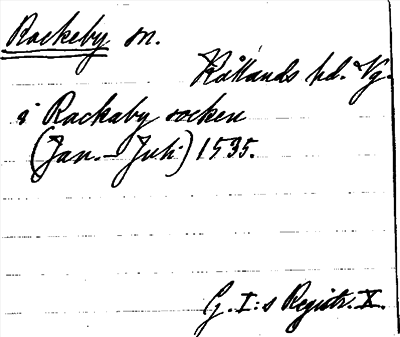 Rackeby sn.
Kållands hd. Vg.
i Rackaby socken
(Jan. - Juli) 1535.
G. I:s Registr. X.